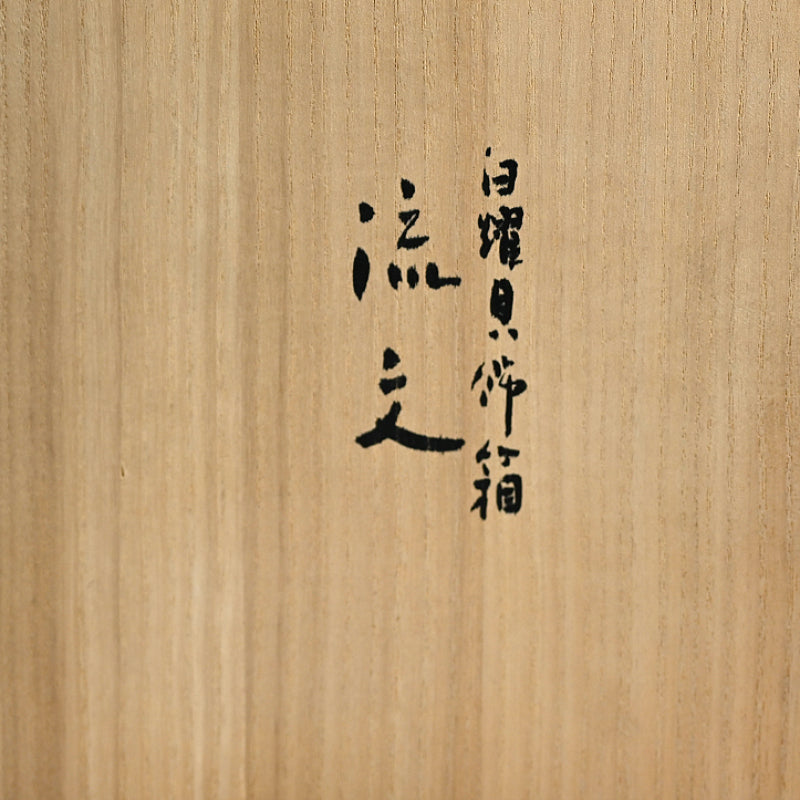 白耀貝飾箱
流文